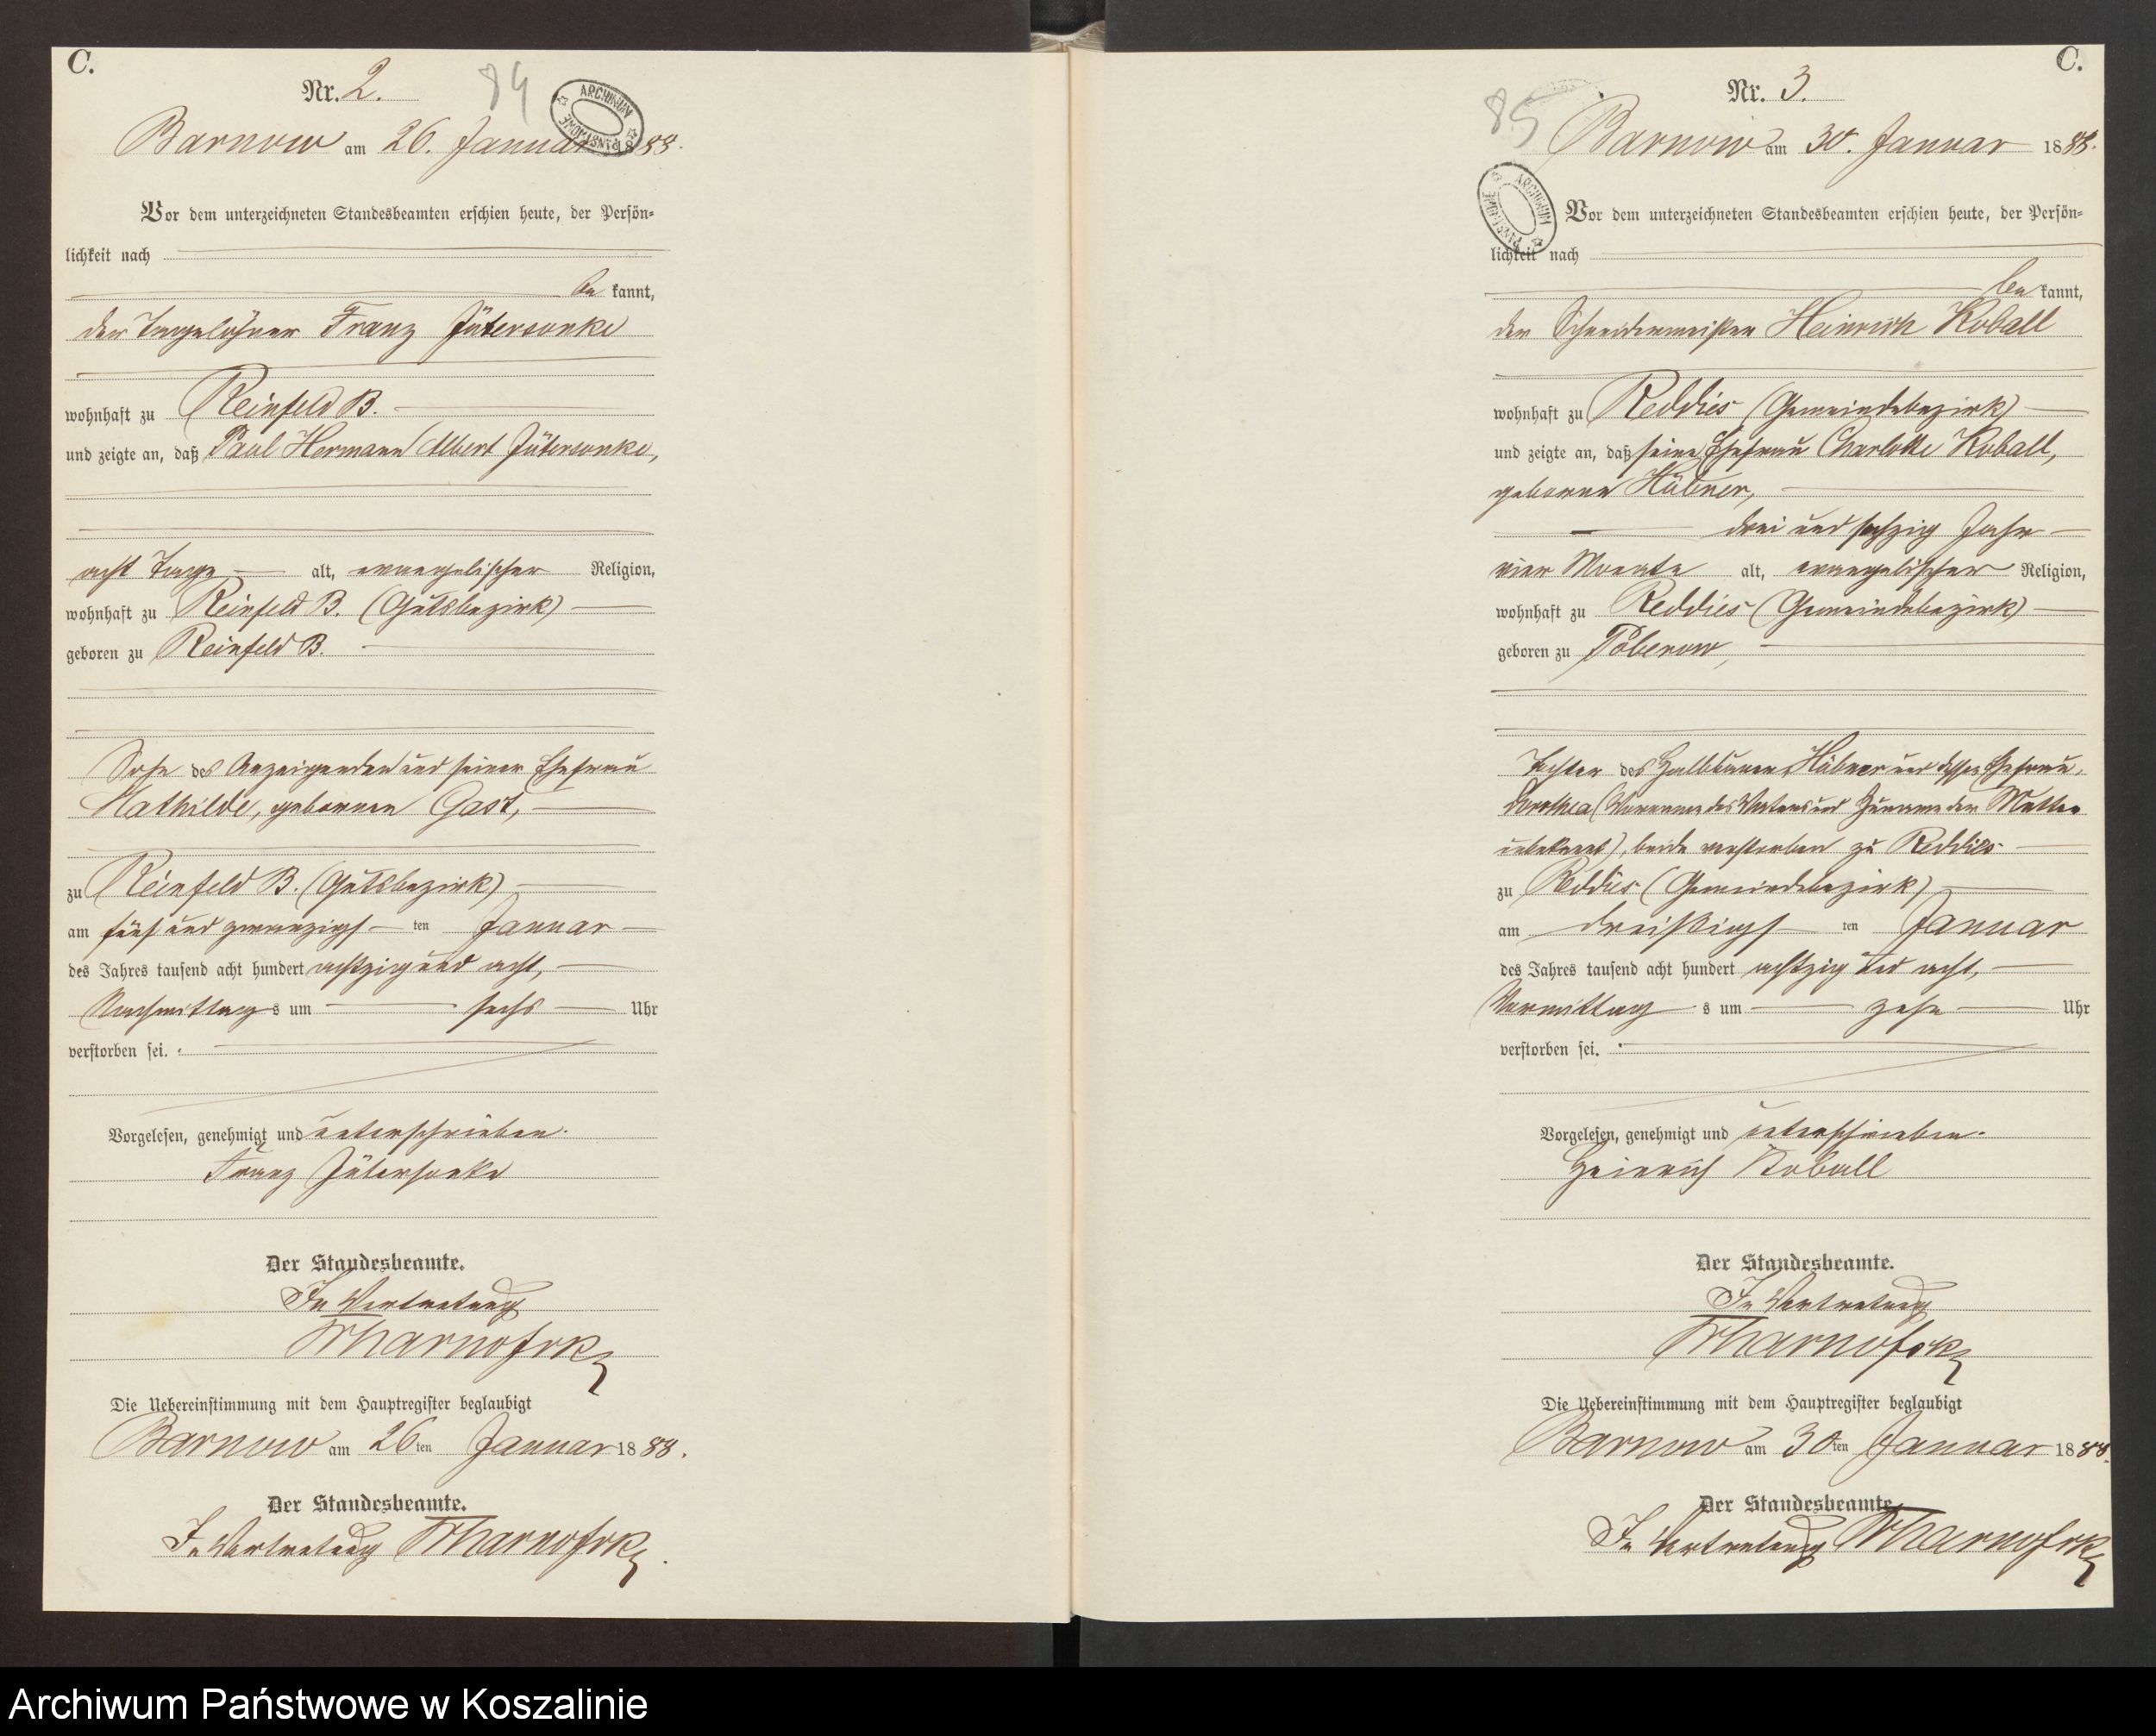 C.
Nr. 2.
84
ARCHIWUM PAŃSTWOWE
Barnow am 26. Januar 1888.
Vor dem unterzeichneten Standesbeamten erschien heute, der Persön-
lichkeit nach
be kannt,
der Tagelöhner Franz Jütersonke
wohnhaft zu Reinfeld B.
und zeigte an, daß Paul Hermann Albert Jütersonke,
acht Tage alt, evangelischer Religion,
wohnhaft zu Reinfeld B. (Gutsbezirk)
geboren zu Reinfeld B.
Sohn des Anzeigenden und seiner Ehefrau
Mathilde, geborenen Gast,
zu Reinfeld B. (Gutsbezirk)
am fünf und zwanzigst ten Januar
des Jahres tausend acht hundert achtzig und acht,
Nachmittag s um sechs Uhr
verstorben sei.
Vorgelesen, genehmigt und unterschrieben.
Franz Jütersonke
Der Standesbeamte.
In Vertretung
Die Uebereinstimmung mit dem Hauptregister beglaubigt
Barnow am 26 ten Januar 1888.
Der Standesbeamte.
In Vertretung
C.
Nr. 3.
85
Barnow am 30. Januar 1888.
ARCHIWUM PAŃSTWOWE
Vor dem unterzeichneten Standesbeamten erschien heute, der Persön-
lichkeit nach
be kannt,
der Schneidermeister Heinrich Koball
wohnhaft zu Reddies (Gemeindebezirk)
und zeigte an, daß seine Ehefrau Charlotte Koball,
geborene Hübner,
drei und sechzig Jahr
vier Monate alt, evangelischer Religion,
wohnhaft zu Reddies (Gemeindebezirk)
geboren zu Poberow,
Tochter des Halbbauer Hübner und dessen Ehefrau
Dorothea (Vorname des Vaters und Zuname der Mutter
unbekannt), beide verstorben zu Reddies
zu Reddies (Gemeindebezirk)
am dreißigst ten Januar
des Jahres tausend acht hundert achtzig und acht,
Vormittag s um zehn Uhr
verstorben sei.
Vorgelesen, genehmigt und unterschrieben.
Heinrich Koball
Der Standesbeamte.
In Vertretung
Die Uebereinstimmung mit dem Hauptregister beglaubigt
Barnow am 30 ten Januar 1888.
Der Standesbeamte.
In Vertretung
Archiwum Państwowe w Koszalinie